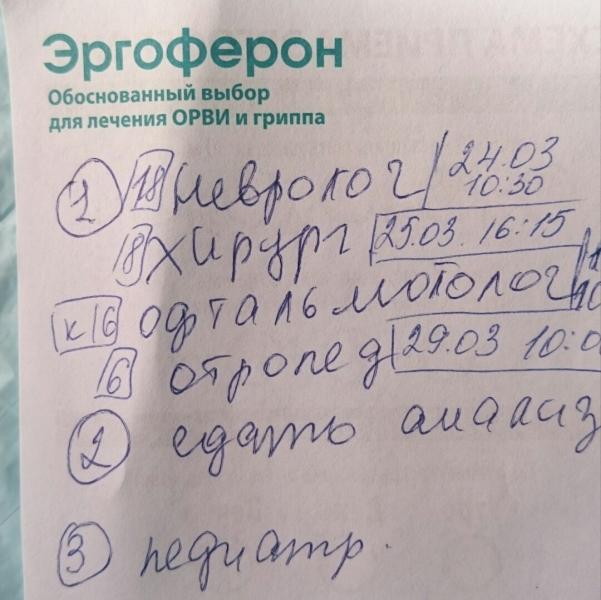 Эргоферон
Обоснованный выбор
для лечения ОРВИ и гриппа
1 18 Невролог 24.03
10:30
18 хирург 25.03 16:15
к16 офтальмотолог
16 отропед 29.03 10:0
2 сдать анализ
3 педиатр.